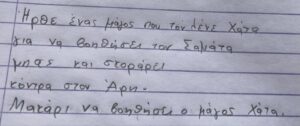 Ηρθε ένας μάγος που τον λένε Χάτα
για να βοηθήσει τον Σαμάτα
μπας και σκοράρει
κόντρα στον Άρη.
Μακάρι να βοηθήσει ο μάγος Χάτα.